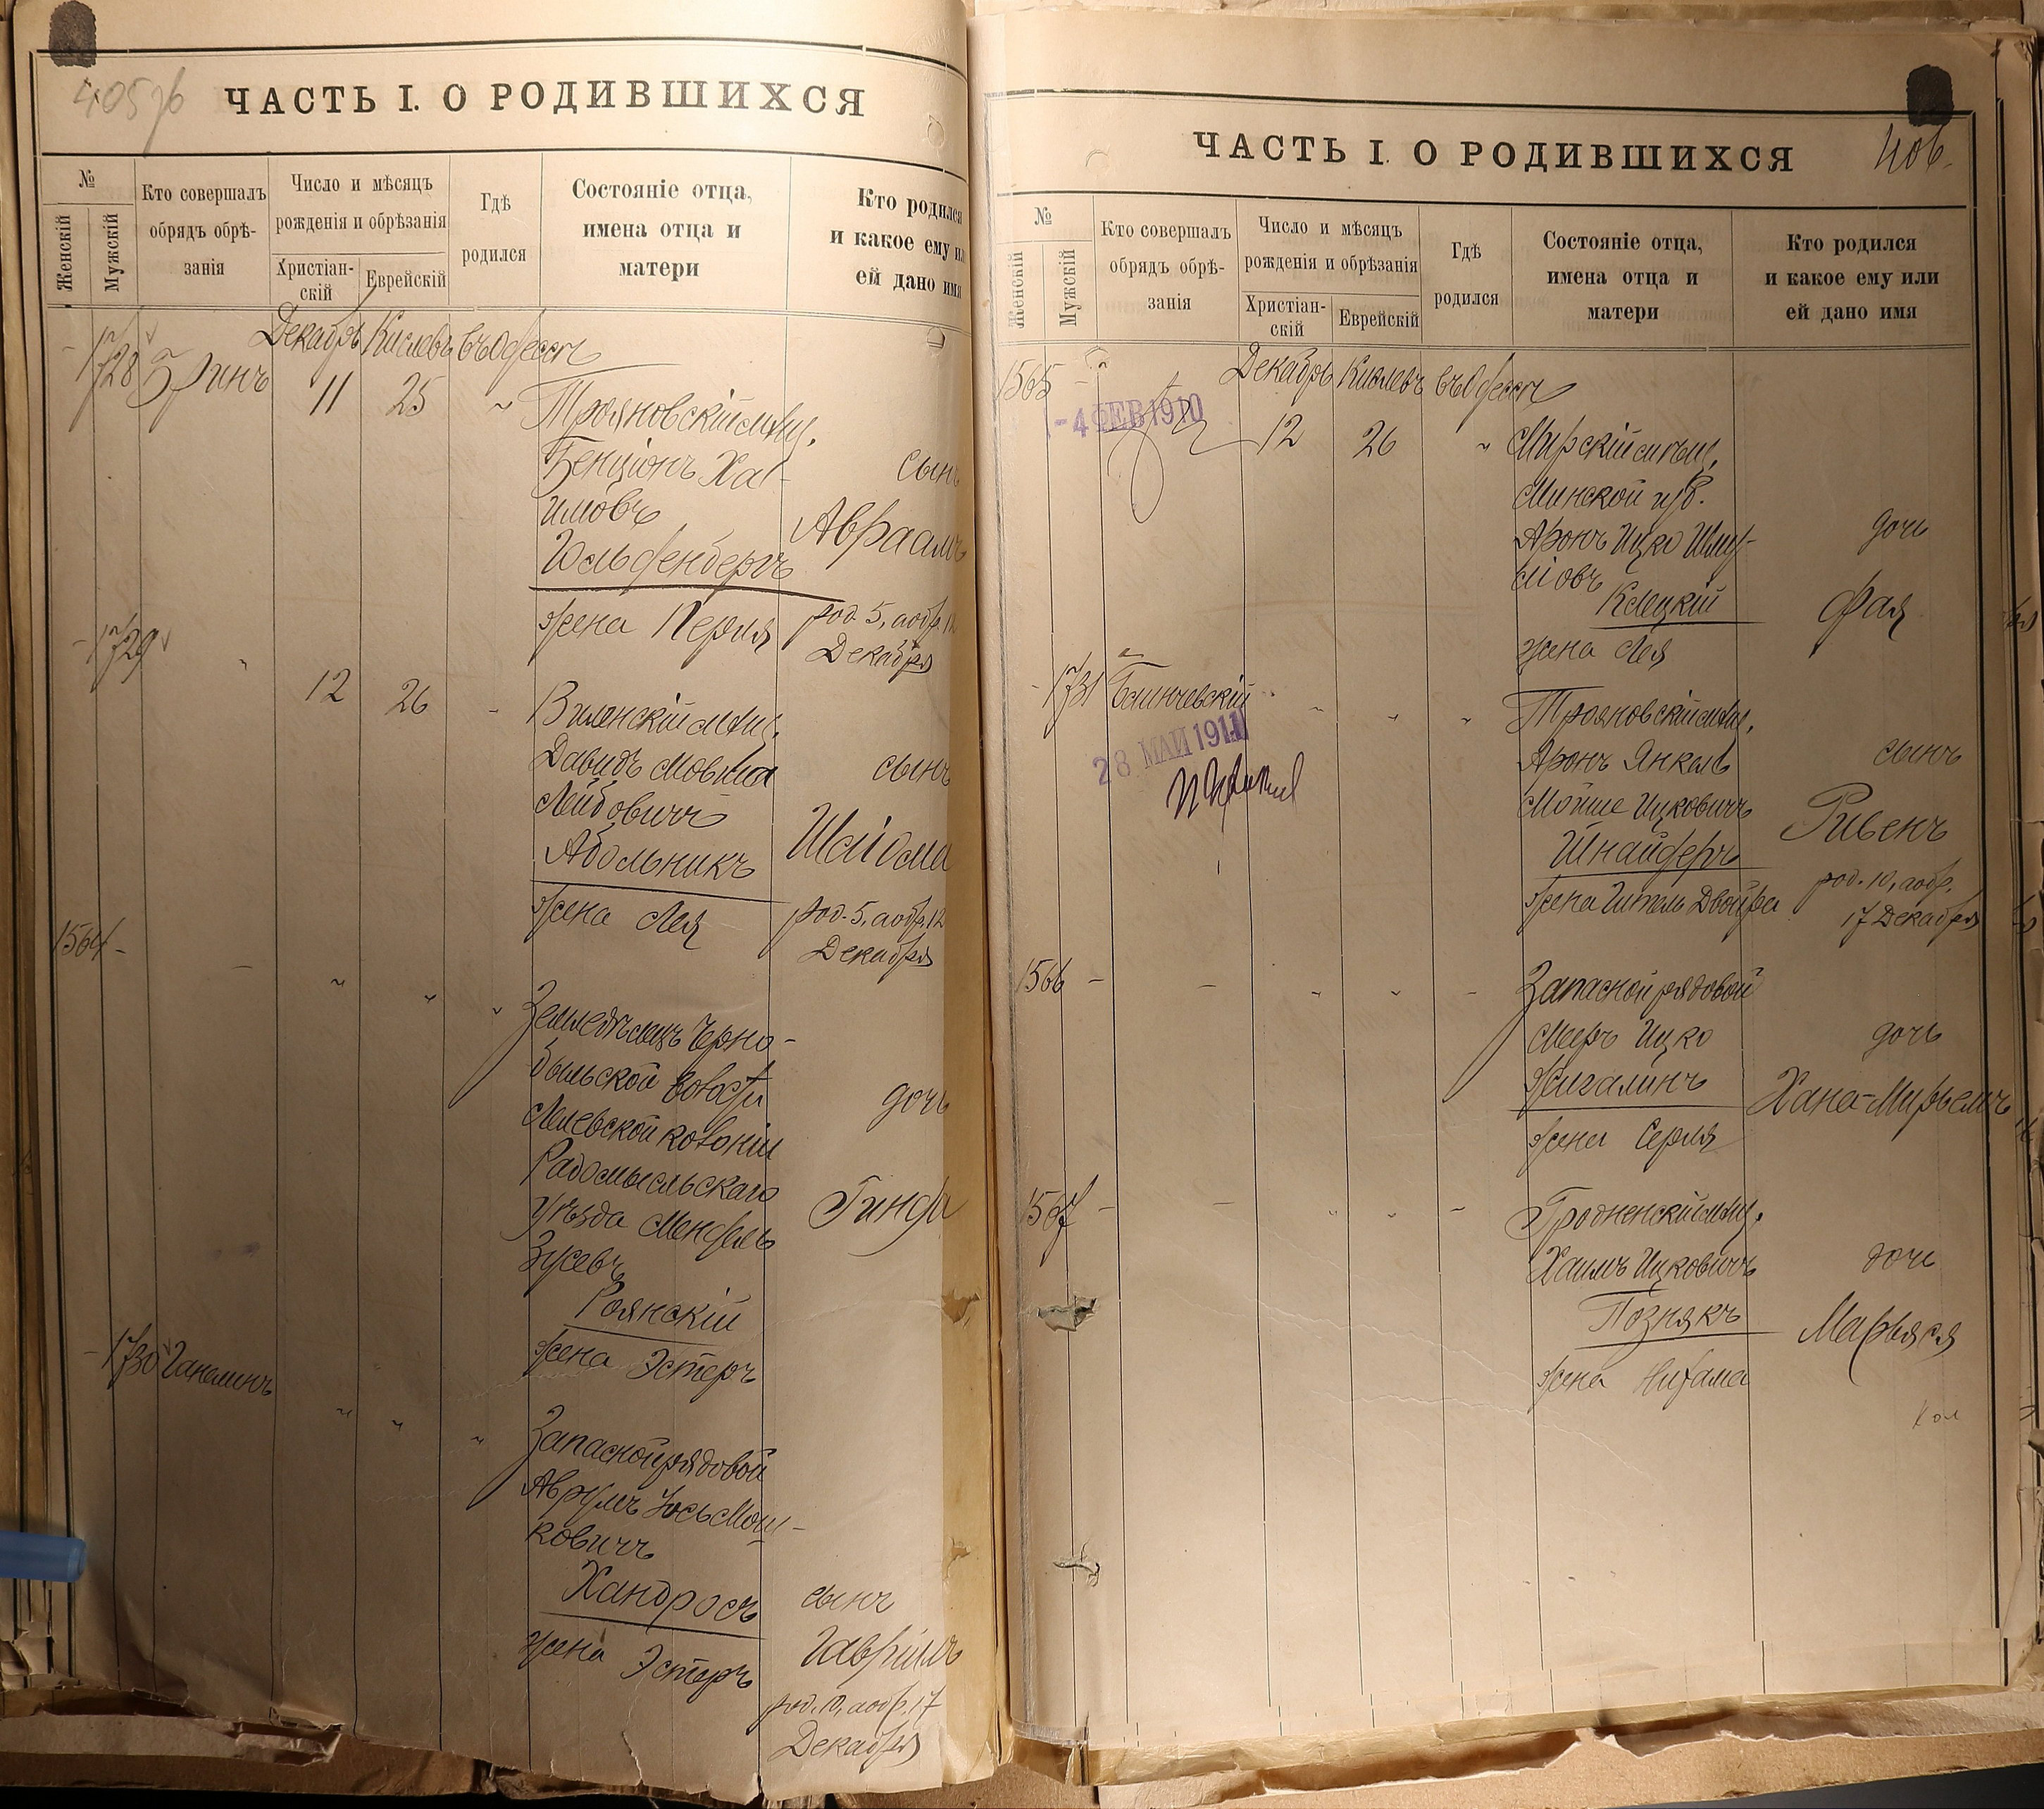 405 об
ЧАСТЬ I. О РОДИВШИХСЯ
№
Женскій
Мужскій
Кто совершалъ
обрядъ обрѣ-
занія
Число и мѣсяцъ
рожденія и обрѣзанія
Христіан-
скій
Еврейскій
Гдѣ
родился
Состояніе отца,
имена отца и
матери
Кто родился
и какое ему или
ей дано имя
Декабрь Кислевъ въ Одессѣ
1728 Гринъ 11 25 "
Трояновскій мѣщ.
Бенціонъ Хаи-
мовъ
Гольденбергъ
жена Перля
сынъ
Авраамъ
род. 5, а обр. 12
Декабря
1729 " 12 26 "
Виленскій мѣщ.
Давидъ Мовша
Лейбовичъ
Абольникъ
жена Лея
сынъ
род. 5, а обр. 12
Декабря
1564 - - " " "
Земледѣлецъ Черно-
быльской волости
колоніи
Радомысльскаго
уѣзда Мендель
Зусевъ
Роянскій
жена Эстеръ
дочь
Гинда
- 1730 Ганелинъ " " "
Запасной рядовой
Аврумъ Іось Мош-
ковичъ
Хандросъ
жена Эстеръ
сынъ
Гавріилъ
род. 10, а обр. 17
Декабря
ЧАСТЬ I. О РОДИВШИХСЯ
406.
№
Женскій
Мужскій
Кто совершалъ
обрядъ обрѣ-
занія
Число и мѣсяцъ
рожденія и обрѣзанія
Христіан-
скій
Еврейскій
Гдѣ
родился
Состояніе отца,
имена отца и
матери
Кто родился
и какое ему или
ей дано имя
Декабрь Кислевъ въ Одессѣ
1565 - 12 26 "
-4 ФЕВ 1910
Мирскій мѣщ.
Минской губ.
Аронъ Ицко Шму-
йловъ
Клецкій
жена Лея
дочь
Фая
- 1731 Блинчевскій " " "
28 МАЙ 1911
Трояновскій мѣщ.
Аронъ Янкель
Мойше Ицковичъ
Шнайдеръ
жена Гитль Двойра
сынъ
Рувенъ
род. 10, а обр.
17 Декабря
1566 - - " " -
Запасной рядовой
Мееръ Ицко
Жигалинъ
жена Серля
дочь
Хана-Мирьемъ
1567 - - " " -
Гродненскій мѣщ.
Хаимъ Ицковичъ
Познякъ
жена Нихама
дочь
Марьяся